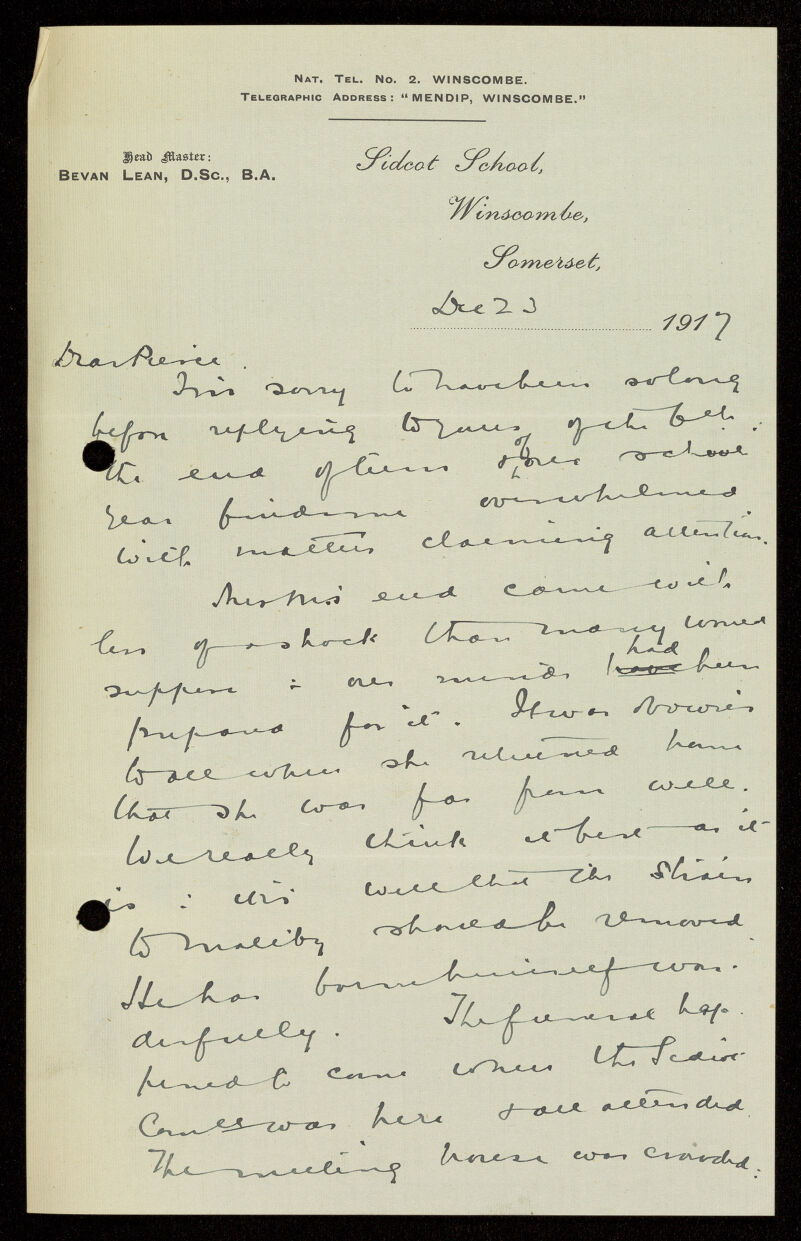 NAT. TEL. NO. 2. WINSCOMBE.
TELEGRAPHIC ADDRESS: "MENDIP, WINSCOMBE."
Head Master:
BEVAN LEAN, D.Sc., B.A.
Sidcot School,
Winscombe,
Somerset,
Dec 23 1917
Dear
I am sorry to have been so long
before replying to yours of the 6th.
the end of term & of our school
year finds me overwhelmed
with matters claiming attention.
end came with
less of a shock than many would
suppose : our minds have had been
prepared for it. It was obvious
to all when she returned home
that she was far from well.
We really think it best as it
is : it is well that the strain
to should be removed.
He has borne himself won-
derfully. The funeral hap-
pened to come when the
Comtee was here & all attended.
The meeting house was crowded: